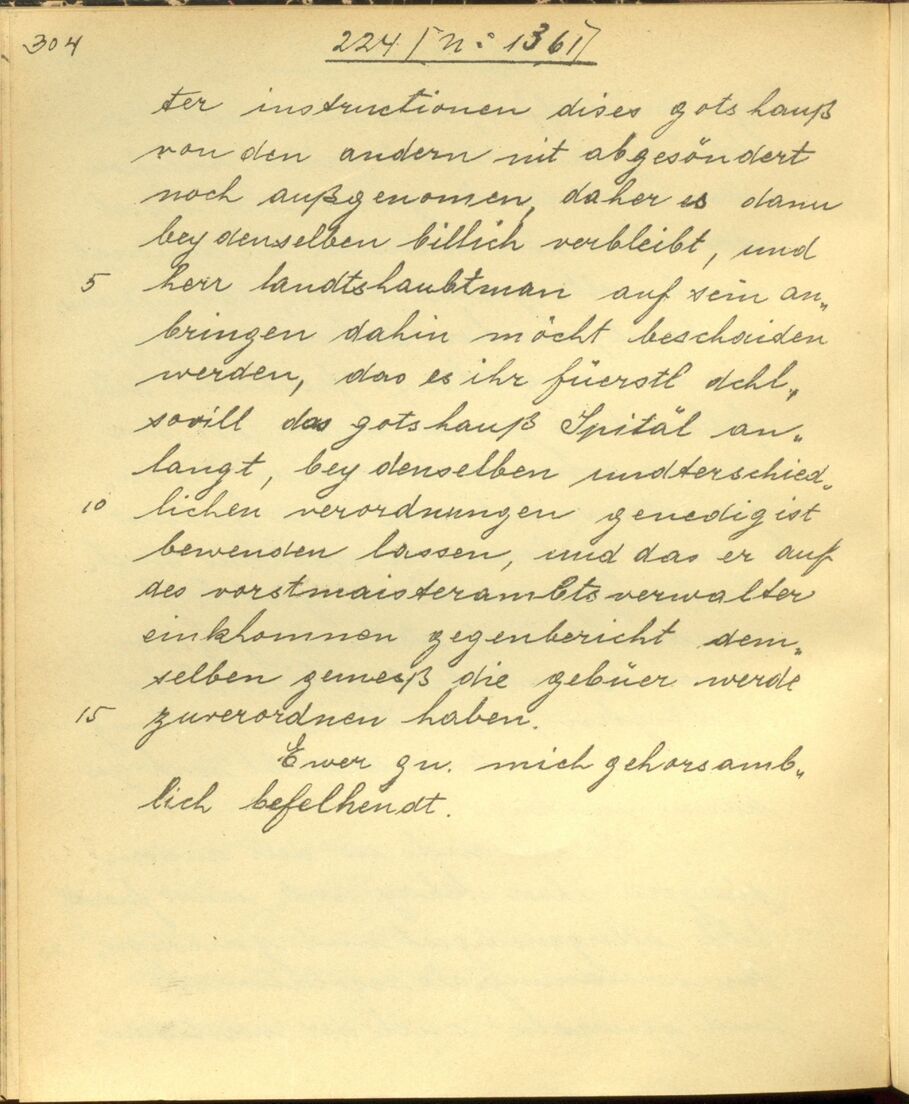 304
224 [n: 1361]
ter instructionen dises gotshauß
von den andern nit abgesöndert
noch außgenomen, daher es dann
bey denselben billich verbleibt, und
5 herr landtshaubtman auf sein an„
bringen dahin möcht beschaiden
werden, das es ihr füerstl dchl„
sovill das gotshauß Spitäl an„
langt, bey denselben undterschied„
10 lichen verordnungen genedigist
bewenden lassen, und das er auf
des vorstmaisterambtsverwalter
einkhomnen gegenbericht dem„
selben gemeß die gebüer werde
15 zuverordnen haben.
Ewer gn. mich gehorsamb„
lich befelhendt.